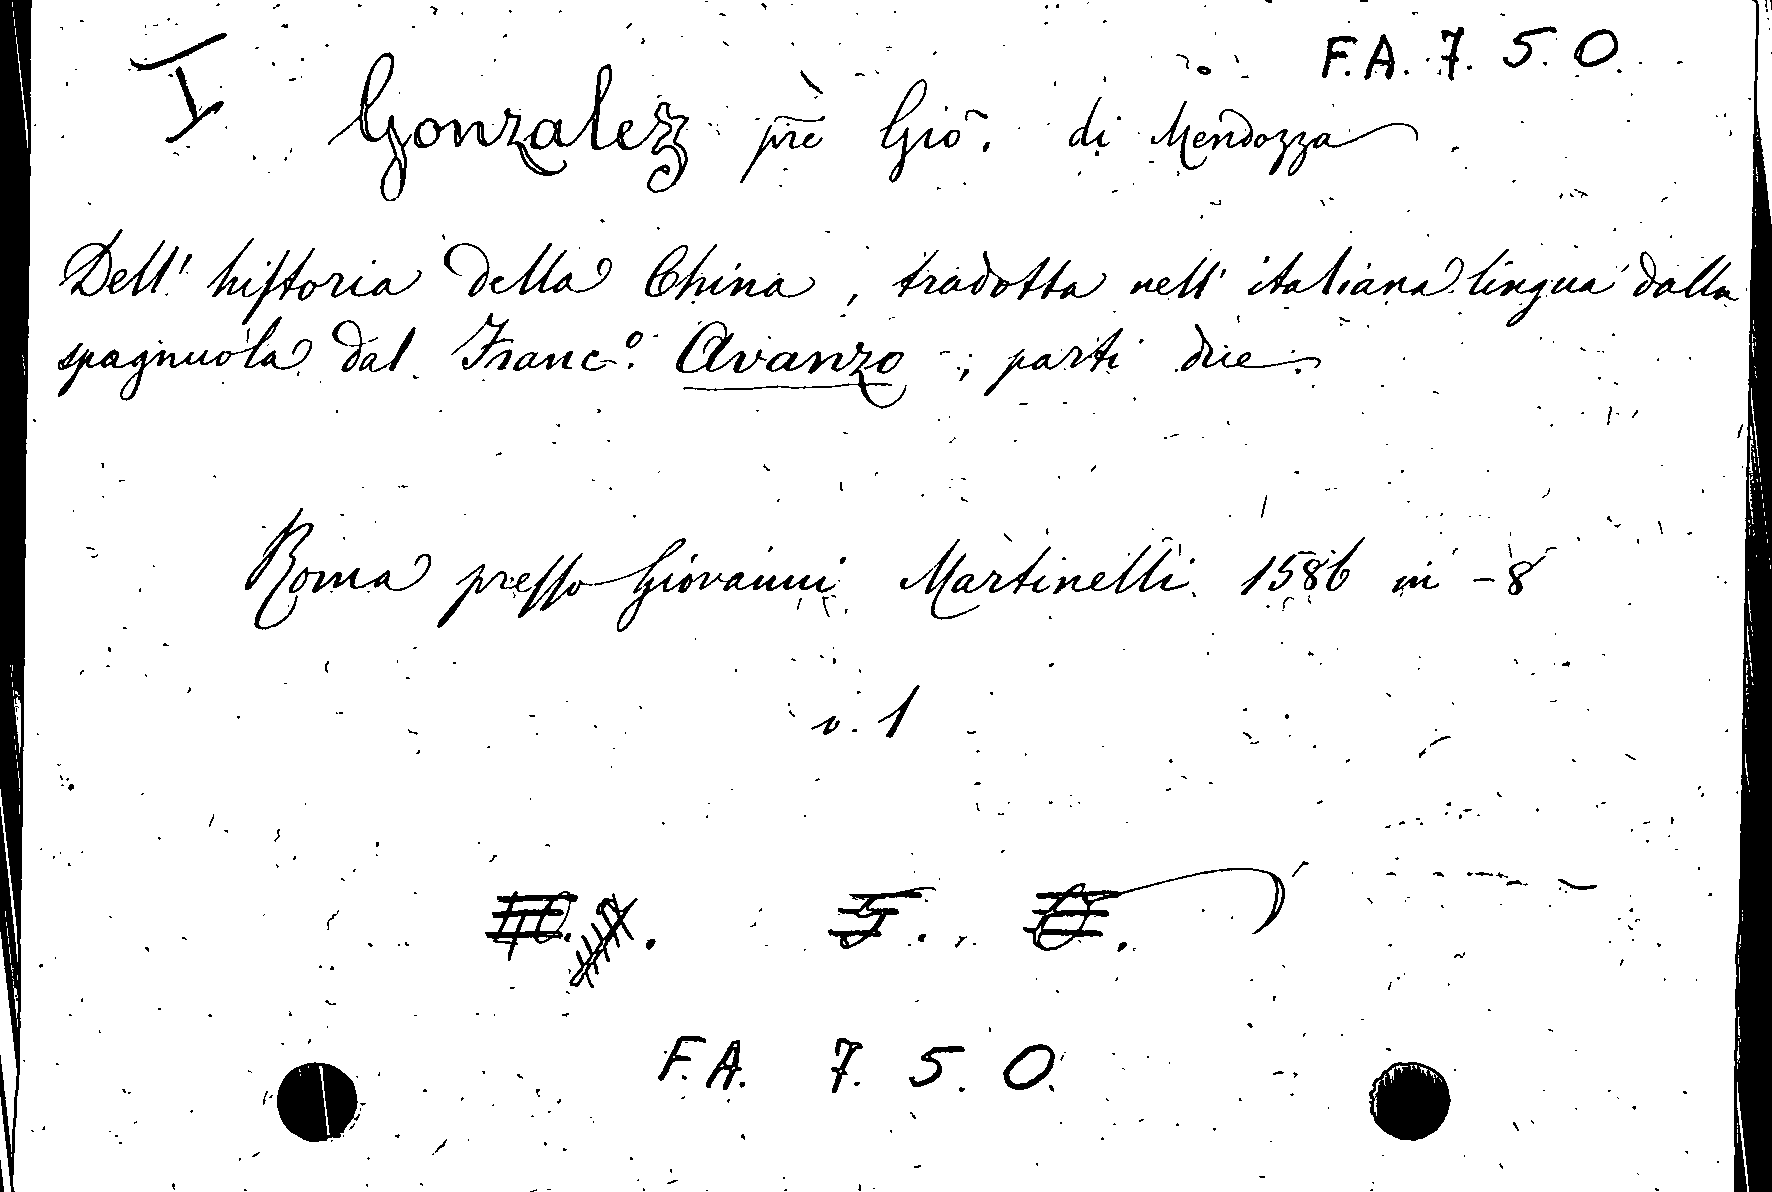 F.A. 7. 5. O.
I Gonzalez prē Giō. di Mendozza
Dell' hiſtoria della China, tradotta nell' italiana lingua dalla
spagnuola dal Franc.º Avanzo; parti due.
Roma preſso Giovanni Martinelli 1586 in-8
v. 1
F.A. 7. 5. O.